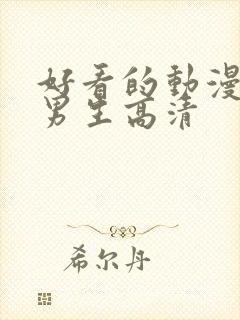 好看的動漫
男生高清
希尔丹